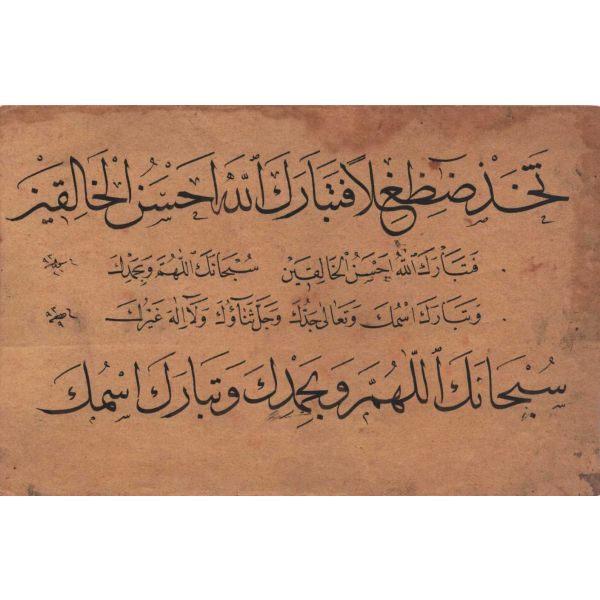 ثخذ ضظغلا فتبارك الله احسن الخالقين
فتبارك الله احسن الخالقين سبحانك اللهم وبحمدك
وتبارك اسمك وتعالى جدك وجل ثناؤك ولا اله غيرك
سبحانك اللهم وبحمدك وتبارك اسمك